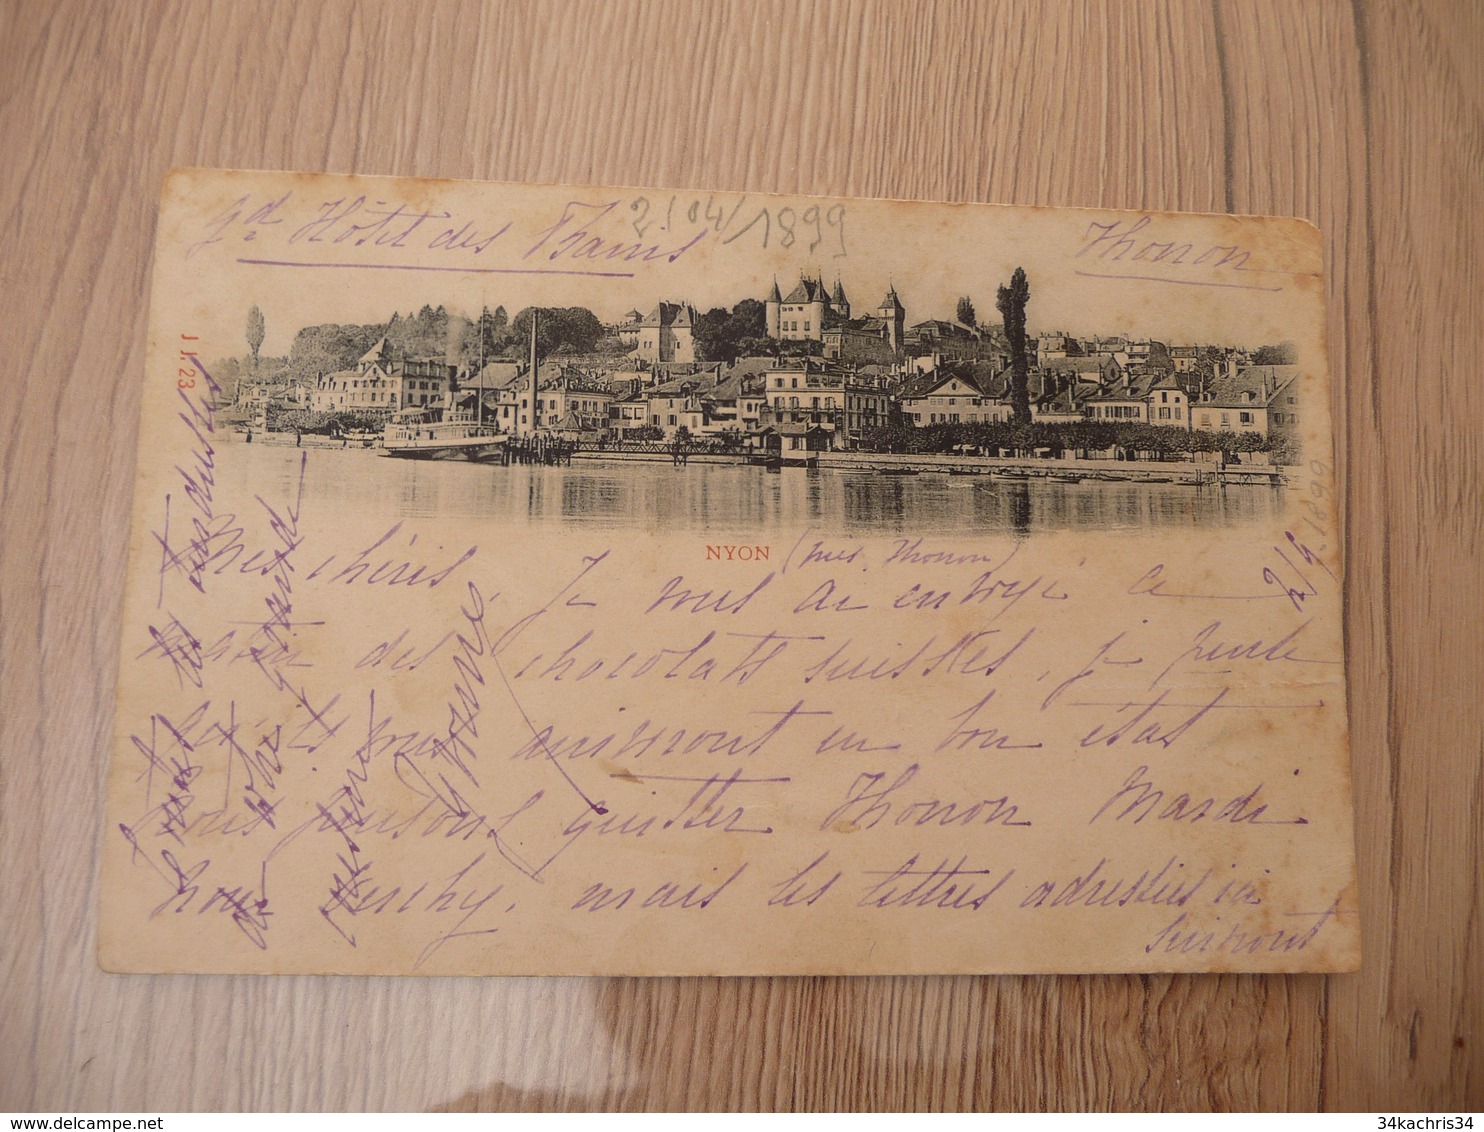 Gd Hôtel des Bains
2/04/1899
Thonon
J J 23
NYON
(près Thonon)
2/4 1899
Mes chéris, Je vous ai envoyé ce
matin des chocolats suisses, je pense
qu'ils vous arriveront en bon état
nous pensons quitter Thonon Mardi
pour mais les lettres adressées ici
suivront
tendresses
de votre grande
34kachris34